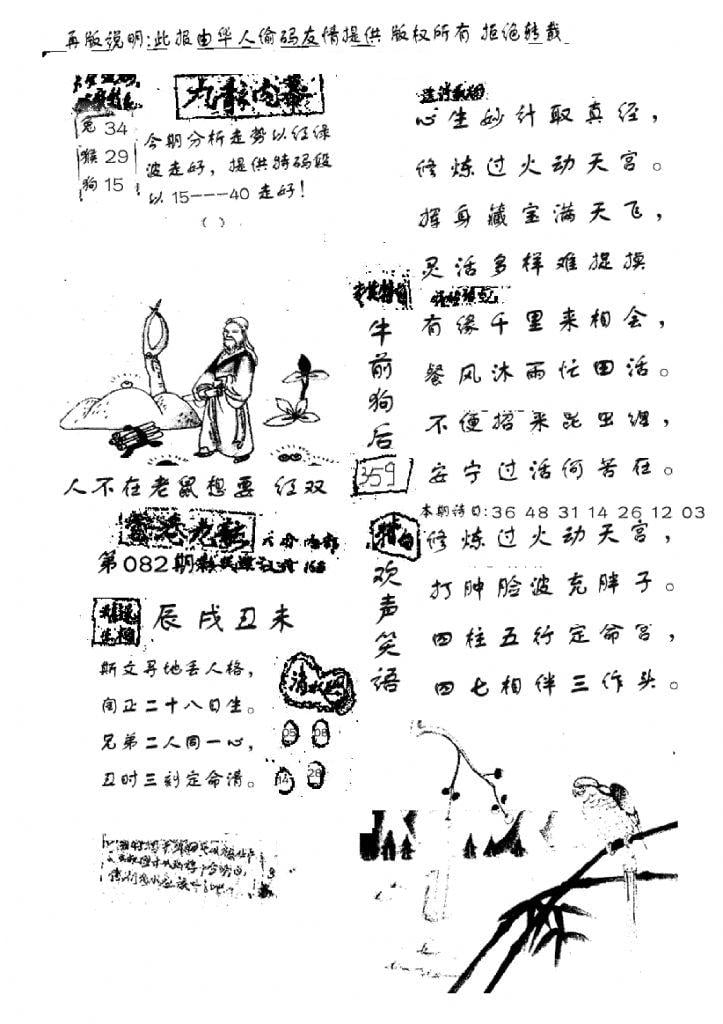 再版说明:此报由华人偷码友情提供 版权所有 拒绝转载
九龍内幕
兔 34
猴 29
狗 15
今期分析走势以红绿
波走好，提供特码段
以 15---40 走好！
( )
心生妙计取真经，
修炼过火动天宫。
挥身藏宝满天飞，
灵活多样难捉摸
牛前狗后
359
有缘千里来相会，
餐风沐雨忙田活。
不便招来昆虫缠，
安宁过活何苦在。
本期诗曰:36 48 31 14 26 12 03
人不在老鼠想要 红双
第082期
辰戌丑未
斯文寻地丢人格，
闰正二十八日生。
兄弟二人同一心，
丑时三刻定命清。
05 08
14 28
欢声笑语
修炼过火动天宫，
打肿脸波充胖子。
四柱五行定命宫，
四七相伴三作头。